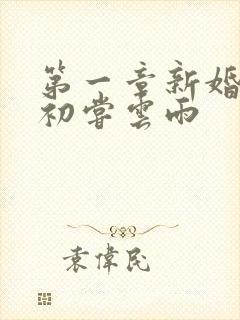 第一章新婚
初嘗雲雨
袁偉民